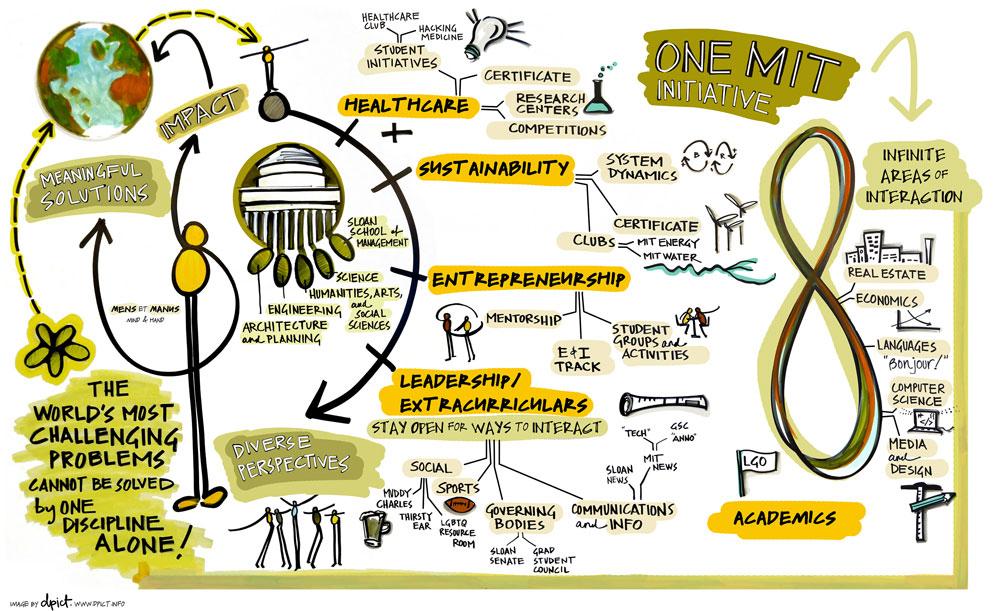 ONE MIT
INITIATIVE
IMPACT
MEANINGFUL
SOLUTIONS
MENS ET MANUS
MIND & HAND
THE
WORLD'S MOST
CHALLENGING
PROBLEMS
CANNOT BE SOLVED
by ONE
DISCIPLINE
ALONE!
SLOAN
SCHOOL of
MANAGEMENT
SCIENCE
HUMANITIES, ARTS,
and
SOCIAL
SCIENCES
ENGINEERING
ARCHITECTURE
and PLANNING
DIVERSE
PERSPECTIVES
HEALTHCARE
CLUB
HACKING
MEDICINE
STUDENT
INITIATIVES
HEALTHCARE
CERTIFICATE
RESEARCH
CENTERS
COMPETITIONS
+
SUSTAINABILITY
SYSTEM
DYNAMICS
B
R
CERTIFICATE
CLUBS
MIT ENERGY
MIT WATER
ENTREPRENEURSHIP
MENTORSHIP
E&I
TRACK
STUDENT
GROUPS and
ACTIVITIES
LEADERSHIP/
EXTRACURRICULARS
STAY OPEN FOR WAYS TO INTERACT
SOCIAL
MUDDY
CHARLES
THIRSTY
EAR
SPORTS
LGBTQ
RESOURCE
ROOM
GOVERNING
BODIES
SLOAN
SENATE
GRAD
STUDENT
COUNCIL
COMMUNICATIONS
and INFO
SLOAN
NEWS
MIT
NEWS
"TECH"
GSC
"ANNO"
LGO
ACADEMICS
INFINITE
AREAS of
INTERACTION
REAL ESTATE
ECONOMICS
LANGUAGES
"Bonjour!"
COMPUTER
SCIENCE
</>
MEDIA
and
DESIGN
IMAGE BY dpict. WWW.DPICT.INFO